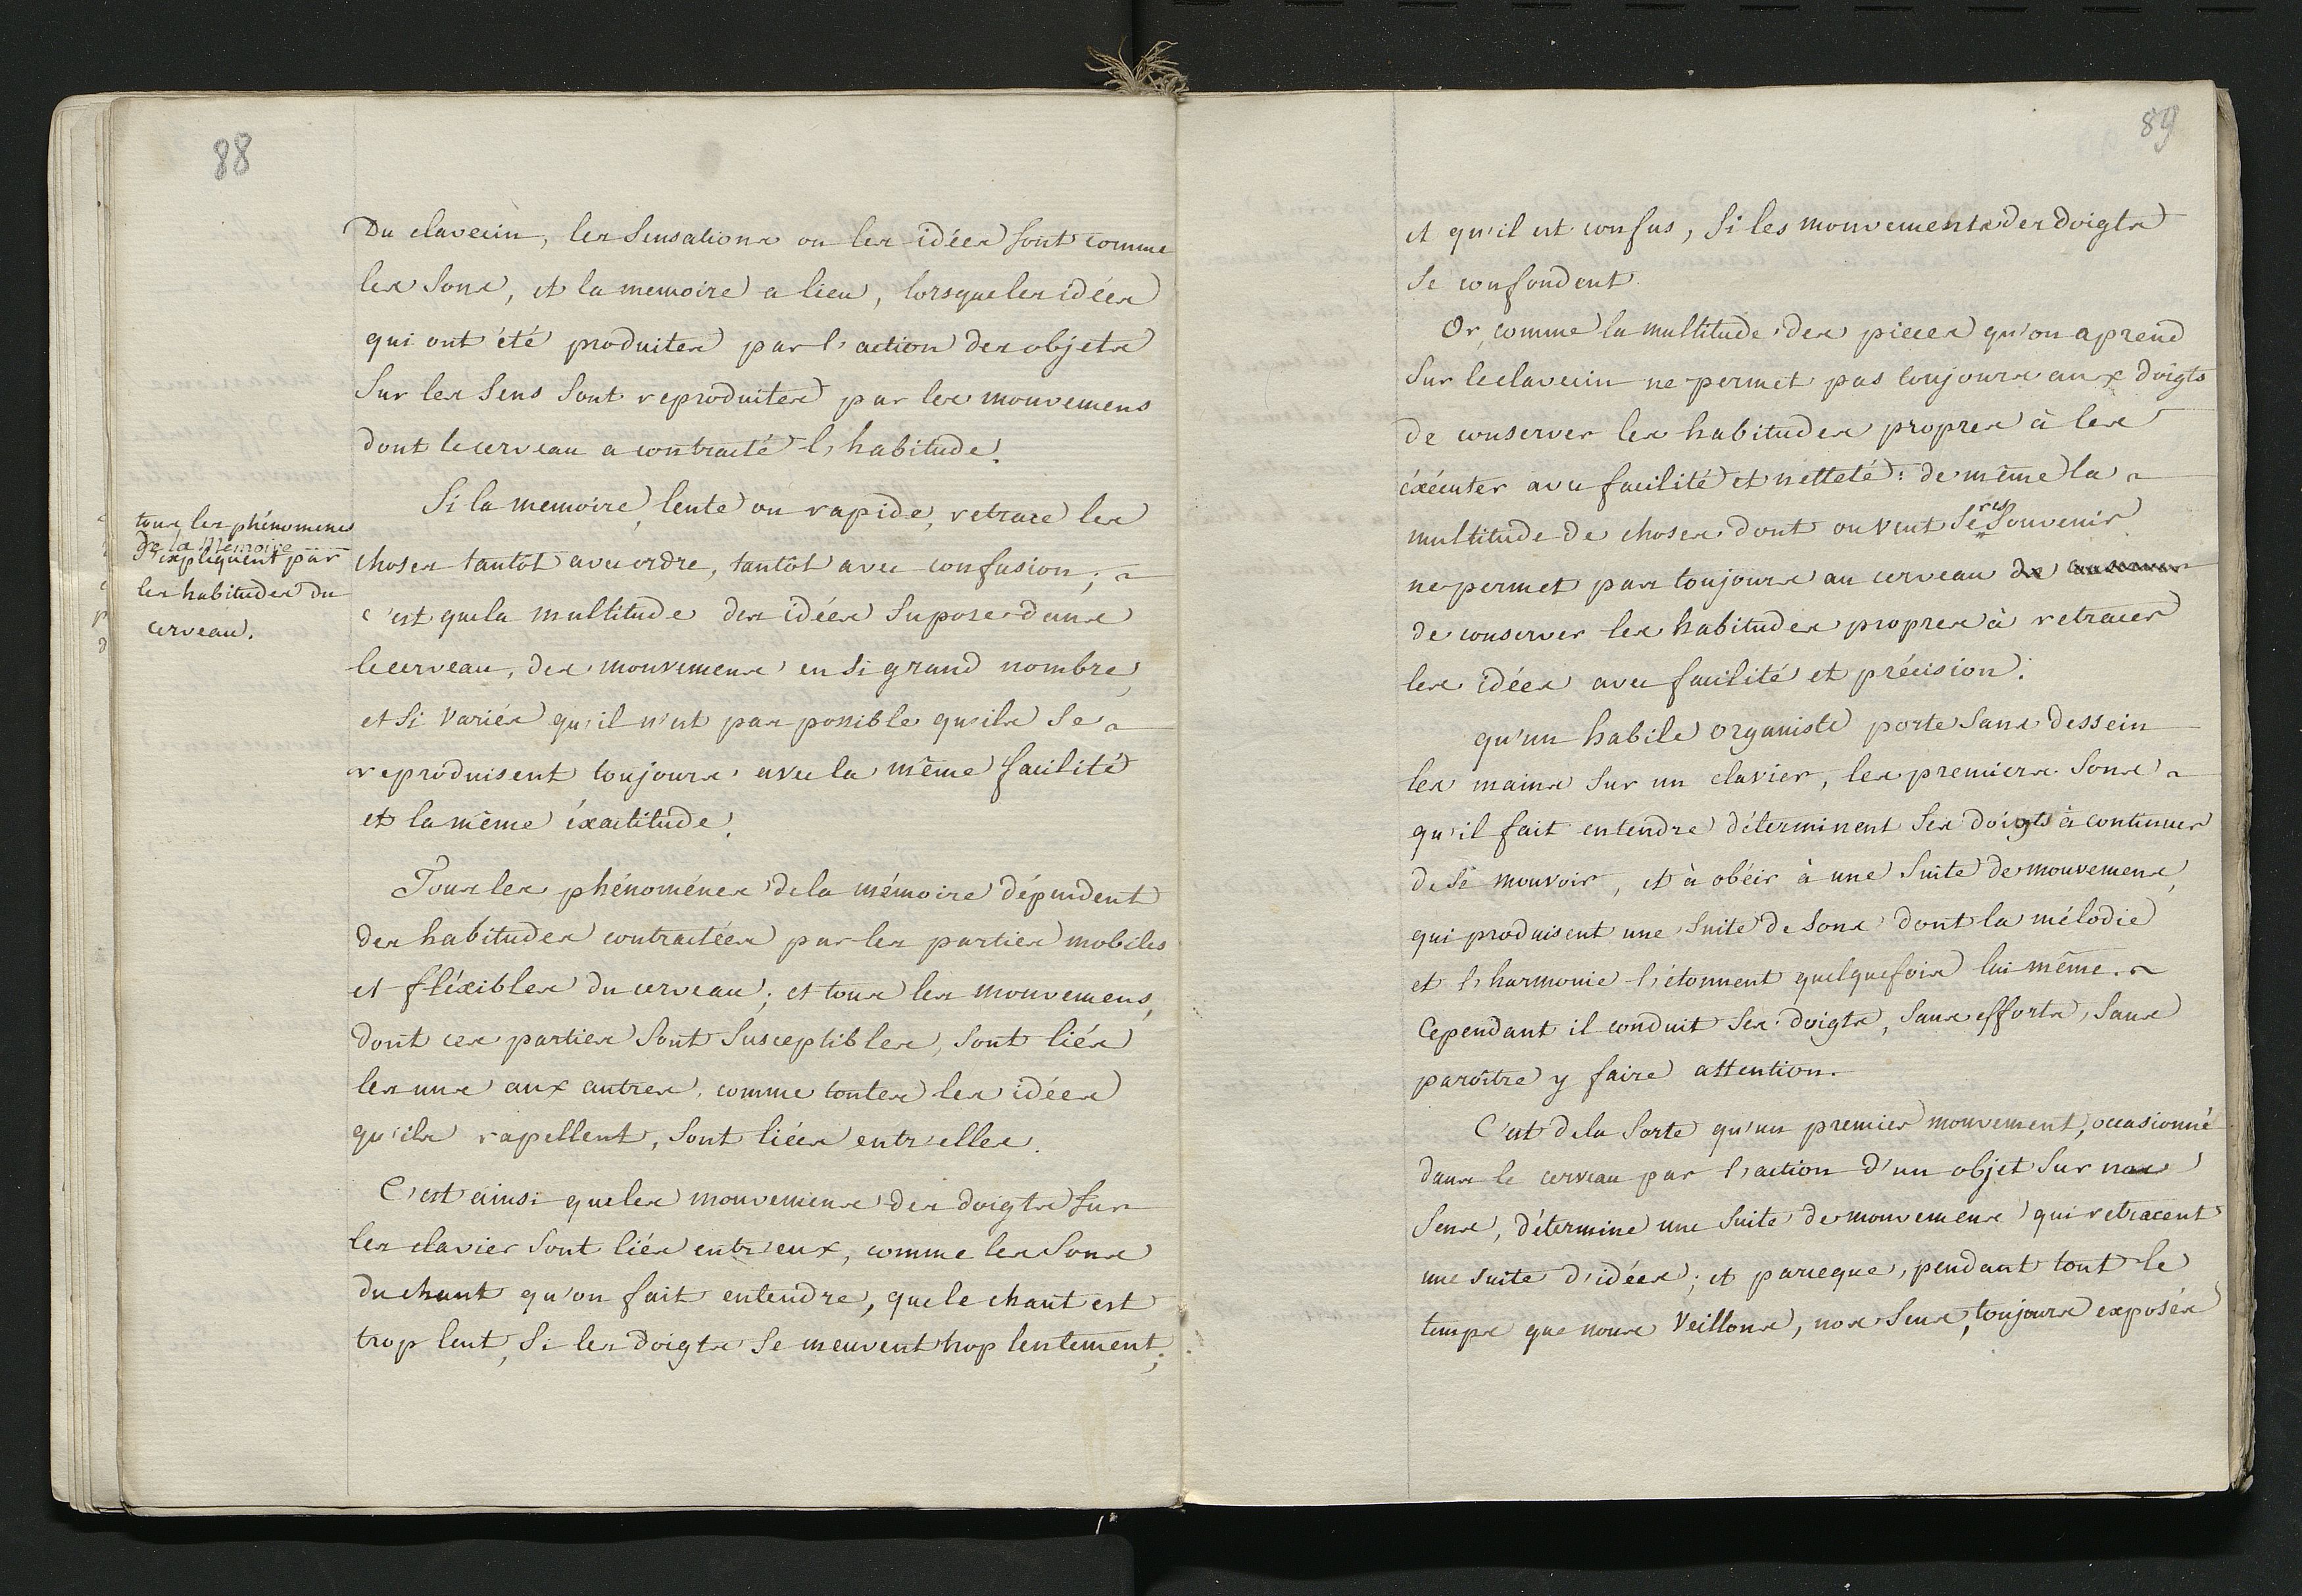 88
Du clavecin, les Sensations ou les idées sont comme
les Sons, et la memoire a lieu, lorsque les idées
qui ont été produites par l'action des objets
Sur les Sens Sont reproduites par les mouvemens
dont le cerveau a contracté l'habitude.
Si la memoire, lente ou rapide, retrace les
choses tantôt avec ordre, tantôt avec confusion ;
c'est que la multitude des idées Supose dans
le cerveau, des mouvemens en Si grand nombre,
et Si variés qu'il n'est pas possible qu'ils Se
reproduisent toujours avec la même facilité
et la même éxactitude.
Tous les phénoménes de la mémoire dépendent
des habitudes contractées par les parties mobiles
et fléxibles du cerveau ; et tous les mouvemens,
dont ces parties Sont Susceptibles, Sont liés
les uns aux autres, comme toutes les idées
qu'ils rapellent, Sont liées entr'elles.
C'est ainsi que les mouvemens des doigts Sur
les clavier Sont liés entr'eux, comme les Sons
du chant qu'on fait entendre, que le chant est
trop lent, Si les doigts Se meuvent trop lentement ;
tous les phénomenes
de la Mémoire
S'expliquent par
les habitudes du
cerveau.
89
et qu'il est confus, Si les mouvements des doigts
Se confondent.
Or, comme la multitude des pieces qu'on aprend
Sur le clavecin ne permet pas toujours aux doigts
de conserver les habitudes propres à les
éxécuter avec facilité et netteté : de même la
multitude de choses dont on veut Se res Souvenir
ne permet pas toujours au cerveau de
de conserver les habitudes propres à retracer
les idées avec facilité et précision.
qu'un habile organiste porte Sans dessein
les mains Sur un clavier, les premiers Sons
qu'il fait entendre déterminent Ses doigts à continuer
de Se mouvoir, et à obéir à une Suite de mouvemens,
qui produisent une Suite de Sons dont la mélodie
et l'harmonie l'étonnent quelquefois lui même.
Cependant il conduit Ses doigts, Sans efforts, Sans
paroître y faire attention.
C'est de la Sorte qu'un premier mouvement, occasionné
dans le cerveau par l'action d'un objet Sur nos
Sens, détermine une Suite de mouvemens qui retracent
une Suite d'idées ; et parceque, pendant tout le
temps que nous Veillons, nos Sens, toujours exposés